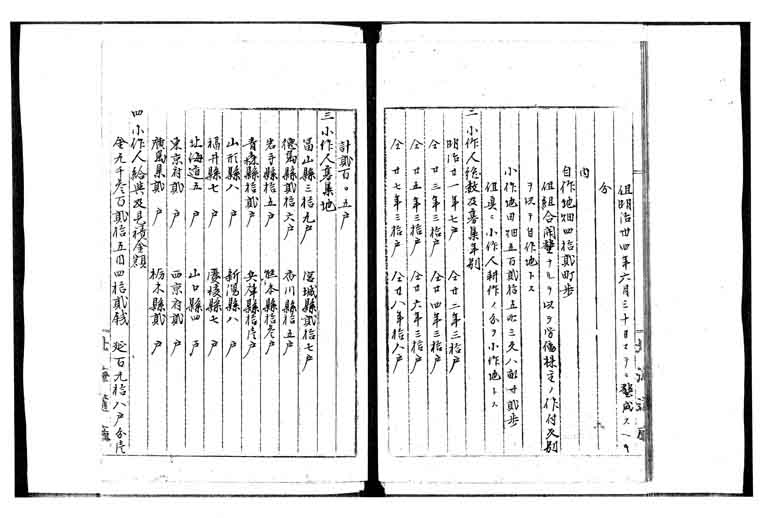 但明治廿四年六月三十日マテニ墾成スヘキ
分
内
自作地畑四拾貳町歩
但組合開墾ナルヲ以テ皆傭株主ノ作付反別
ヲ以テ自作地トス
小作地田畑五百貳拾五町三反八畝廿貳歩
但真ニ小作人耕作ノ分ヲ小作地トス
二 小作人總數及募集年別
明治廿一年七戸 仝廿二年三拾戸
仝廿三年三拾戸 仝廿四年三拾戸
仝廿五年三拾戸 仝廿六年三拾戸
仝廿七年三拾戸 仝廿八年拾八戸
計貳百〇五戸
三 小作人募集地
富山縣三拾九戸 宮城縣貳拾七戸
徳島縣貳拾六戸 香川縣拾五戸
岩手縣拾五戸 熊本縣拾参戸
青森縣拾貳戸 兵庫縣拾参戸
山形縣八戸 新潟縣八戸
福井縣七戸 縣七戸
北海道五戸 山口縣四戸
東京府貳戸 西京府貳戸
廣島縣貳戸 栃木縣貳戸
四 小作人給與及見積金額
金九千参百貳拾五円四拾貳銭 延百九拾八戸分
北海道廳
北海道廳